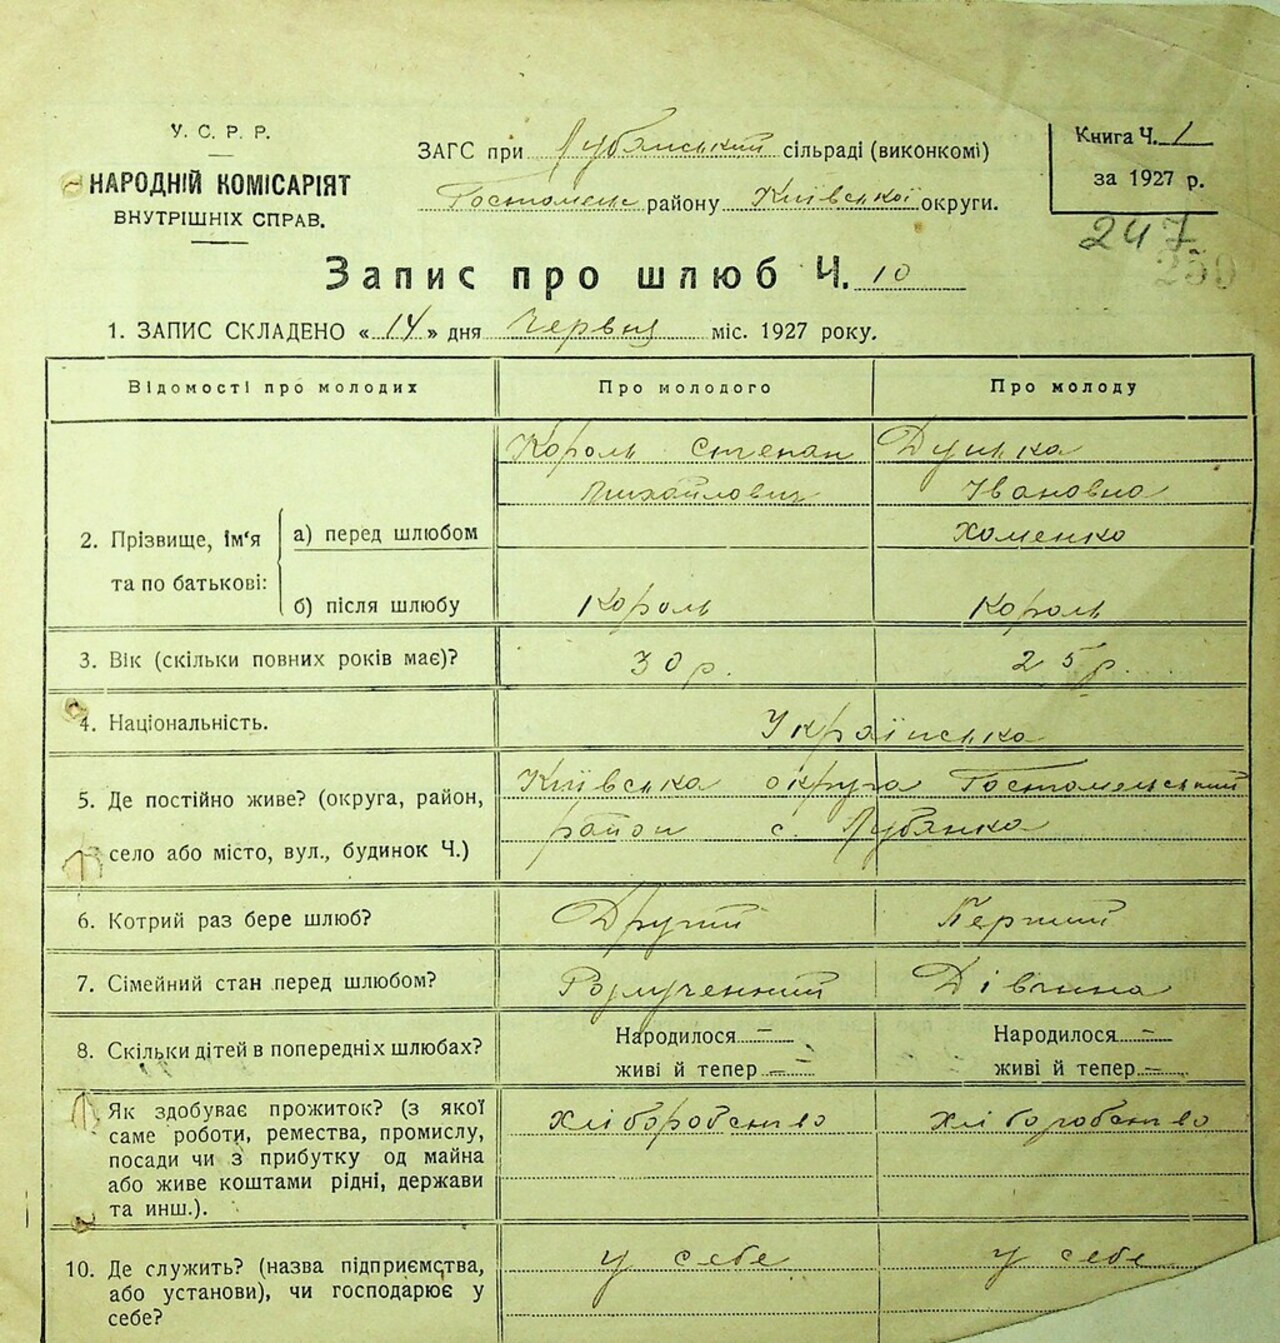 У. С. Р. Р.
НАРОДНІЙ КОМІСАРІЯТ
ВНУТРІШНІХ СПРАВ.
ЗАГС при Лубянський сільраді (виконкомі)
Гостомельс району Київської округи.
Книга Ч. 1
за 1927 р.
247
250
Запис про шлюб Ч. 10
1. ЗАПИС СКЛАДЕНО «14» дня Червня міс. 1927 року.
Відомості про молодих Про молодого Про молоду
2. Прізвище, ім'я та по батькові:
а) перед шлюбом
Король Степан
Михайлович
Дунька
Івановна
Хоменко
б) після шлюбу Король Король
3. Вік (скільки повних років має)? 30 р. 25 р.
4. Національність. Українська
5. Де постійно живе? (округа, район,
село або місто, вул., будинок Ч.)
Київська округа Гостомельський
район с. Лубянка
6. Котрий раз бере шлюб? Другий Перший
7. Сімейний стан перед шлюбом? Розлученний Дівчина
8. Скільки дітей в попередніх шлюбах?
Народилося — Народилося —
живі й тепер — живі й тепер —
Як здобуває прожиток? (з якої
саме роботи, ремества, промислу,
посади чи з прибутку од майна
або живе коштами рідні, держави
та инш.).
Хліборобство Хліборобство
10. Де служить? (назва підприємства,
або установи), чи господарює у
себе?
у себе у себе